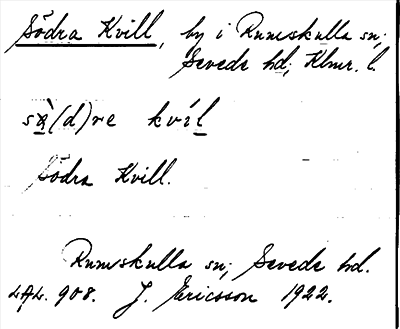 Södra Kvill, by i Rumskulla sn;
Sevede hd; Klmr. l.
kvíl
Södra Kvill.
Rumskulla sn; Sevede hd.
908. J. Ericsson 1922.